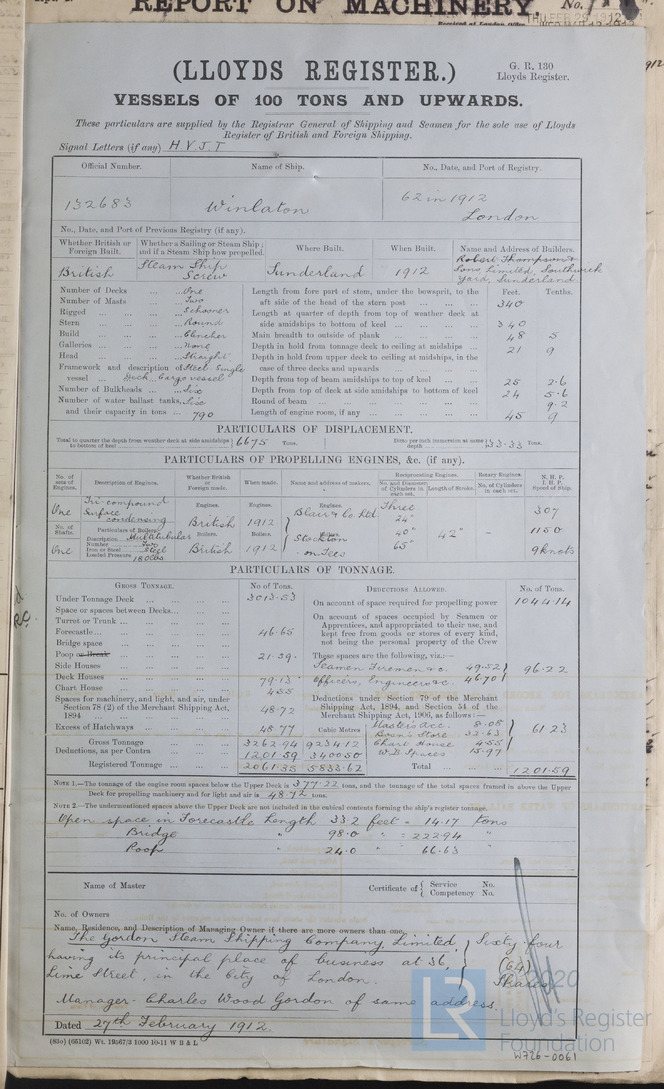 REPORT ON MACHINERY. No.
THU. FEB 29 1912
(LLOYDS REGISTER.)
G. R. 130
Lloyds Register.
VESSELS OF 100 TONS AND UPWARDS.
These particulars are supplied by the Registrar General of Shipping and Seamen for the sole use of Lloyds
Register of British and Foreign Shipping.
Signal Letters (if any) H V J T
Official Number. Name of Ship. No., Date, and Port of Registry.
132683 Winlaton 62 in 1912
London
No., Date, and Port of Previous Registry (if any).
Whether British or Foreign Built. Whether a Sailing or Steam Ship; and if a Steam Ship how propelled. Where Built. When Built. Name and Address of Builders.
British Steam Ship Screw Sunderland 1912 Robert Thompson & Sons Limited, Southwick Yard, Sunderland
Feet. Tenths.
Number of Decks One Length from fore part of stem, under the bowsprit, to the
Number of Masts Two aft side of the head of the stern post 340
Rigged Schooner Length at quarter of depth from top of weather deck at
Stern Round side amidships to bottom of keel 340
Build Clincher Main breadth to outside of plank 48 5
Galleries None Depth in hold from tonnage deck to ceiling at midships 21 9
Head Straight Depth in hold from upper deck to ceiling at midships, in the
Framework and description of Steel Single case of three decks and upwards
vessel Deck Cargo vessel Depth from top of beam amidships to top of keel 25 2.6
Number of Bulkheads Six Depth from top of deck at side amidships to bottom of keel 24 5.6
Number of water ballast tanks, Six Round of beam 9.2
and their capacity in tons 790 Length of engine room, if any 45 9
PARTICULARS OF DISPLACEMENT.
Total to quarter the depth from weather deck at side amidships to bottom of keel } 6675 Tons. Ditto per inch immersion at same depth } 33.33 Tons.
PARTICULARS OF PROPELLING ENGINES, &c. (if any).
No. of sets of Engines. Description of Engines. Whether British or Foreign made. When made. Name and address of makers. Reciprocating Engines. Rotary Engines. N. H. P. I. H. P. Speed of Ship.
No. and Diameter of Cylinders in each set. Length of Stroke. No. of Cylinders in each set.
One Tri-compound Surface condensing Engines. British Engines. 1912 Engines. Blair & Co Ltd Three 24" 307
No. of Shafts. Particulars of Boilers. Boilers. Boilers. Boilers. Stockton on Tees 40" 42" - 1150
One Description Multitubular
Number Two
Iron or Steel Steel
Loaded Pressure 180 lbs British 1912 65" 9 knots
PARTICULARS OF TONNAGE.
GROSS TONNAGE. No of Tons. DEDUCTIONS ALLOWED. No. of Tons.
Under Tonnage Deck 3013.53 On account of space required for propelling power 1044.14
Space or spaces between Decks On account of spaces occupied by Seamen or
Turret or Trunk Apprentices, and appropriated to their use, and
Forecastle 46.65 kept free from goods or stores of every kind,
Bridge space not being the personal property of the Crew
Poop or Break 21.39 These spaces are the following, viz.:—
Side Houses Seamen Firemen &c. 49.52
Deck Houses 79.13 Officers, Engineers &c. 46.70 } 96.22
Chart House 4.55
Spaces for machinery, and light, and air, under Deductions under Section 79 of the Merchant
Section 78 (2) of the Merchant Shipping Act, 1894 48.72 Shipping Act, 1894, and Section 54 of the
Merchant Shipping Act, 1906, as follows:—
Excess of Hatchways 48.77 Cubic Metres Master's Acc. 8.08
Gross Tonnage 3262.94 9234.12 Bosn's Store 32.63 } 61.23
Deductions, as per Contra 1201.59 3400.50 Chart House 4.55
W.B. Spaces 15.97
Registered Tonnage 2061.35 5833.62 Total 1201.59
NOTE 1.—The tonnage of the engine room spaces below the Upper Deck is 377.22 tons, and the tonnage of the total spaces framed in above the Upper
Deck for propelling machinery and for light and air is 48.72 tons.
NOTE 2.—The undermentioned spaces above the Upper Deck are not included in the cubical contents forming the ship's register tonnage.
Open space in Forecastle Length 33.2 feet = 14.17 tons
Bridge " 98.0 " = 222.94 "
Poop " 24.0 " 66.63
Name of Master Certificate of { Service No. Competency No.
No. of Owners
Name, Residence, and Description of Managing Owner if there are more owners than one.
The Gordon Steam Shipping Company, Limited, } Sixty-four
having its principal place of business at 36, } (64)
Lime Street, in the City of London. } Shares
Manager - Charles Wood Gordon of same address
Dated 27th February 1912.
(83o) (65102) Wt. 19567/3 1000 10-11 W B & L
2020
LR
Lloyd's Register
Foundation
W726-0061